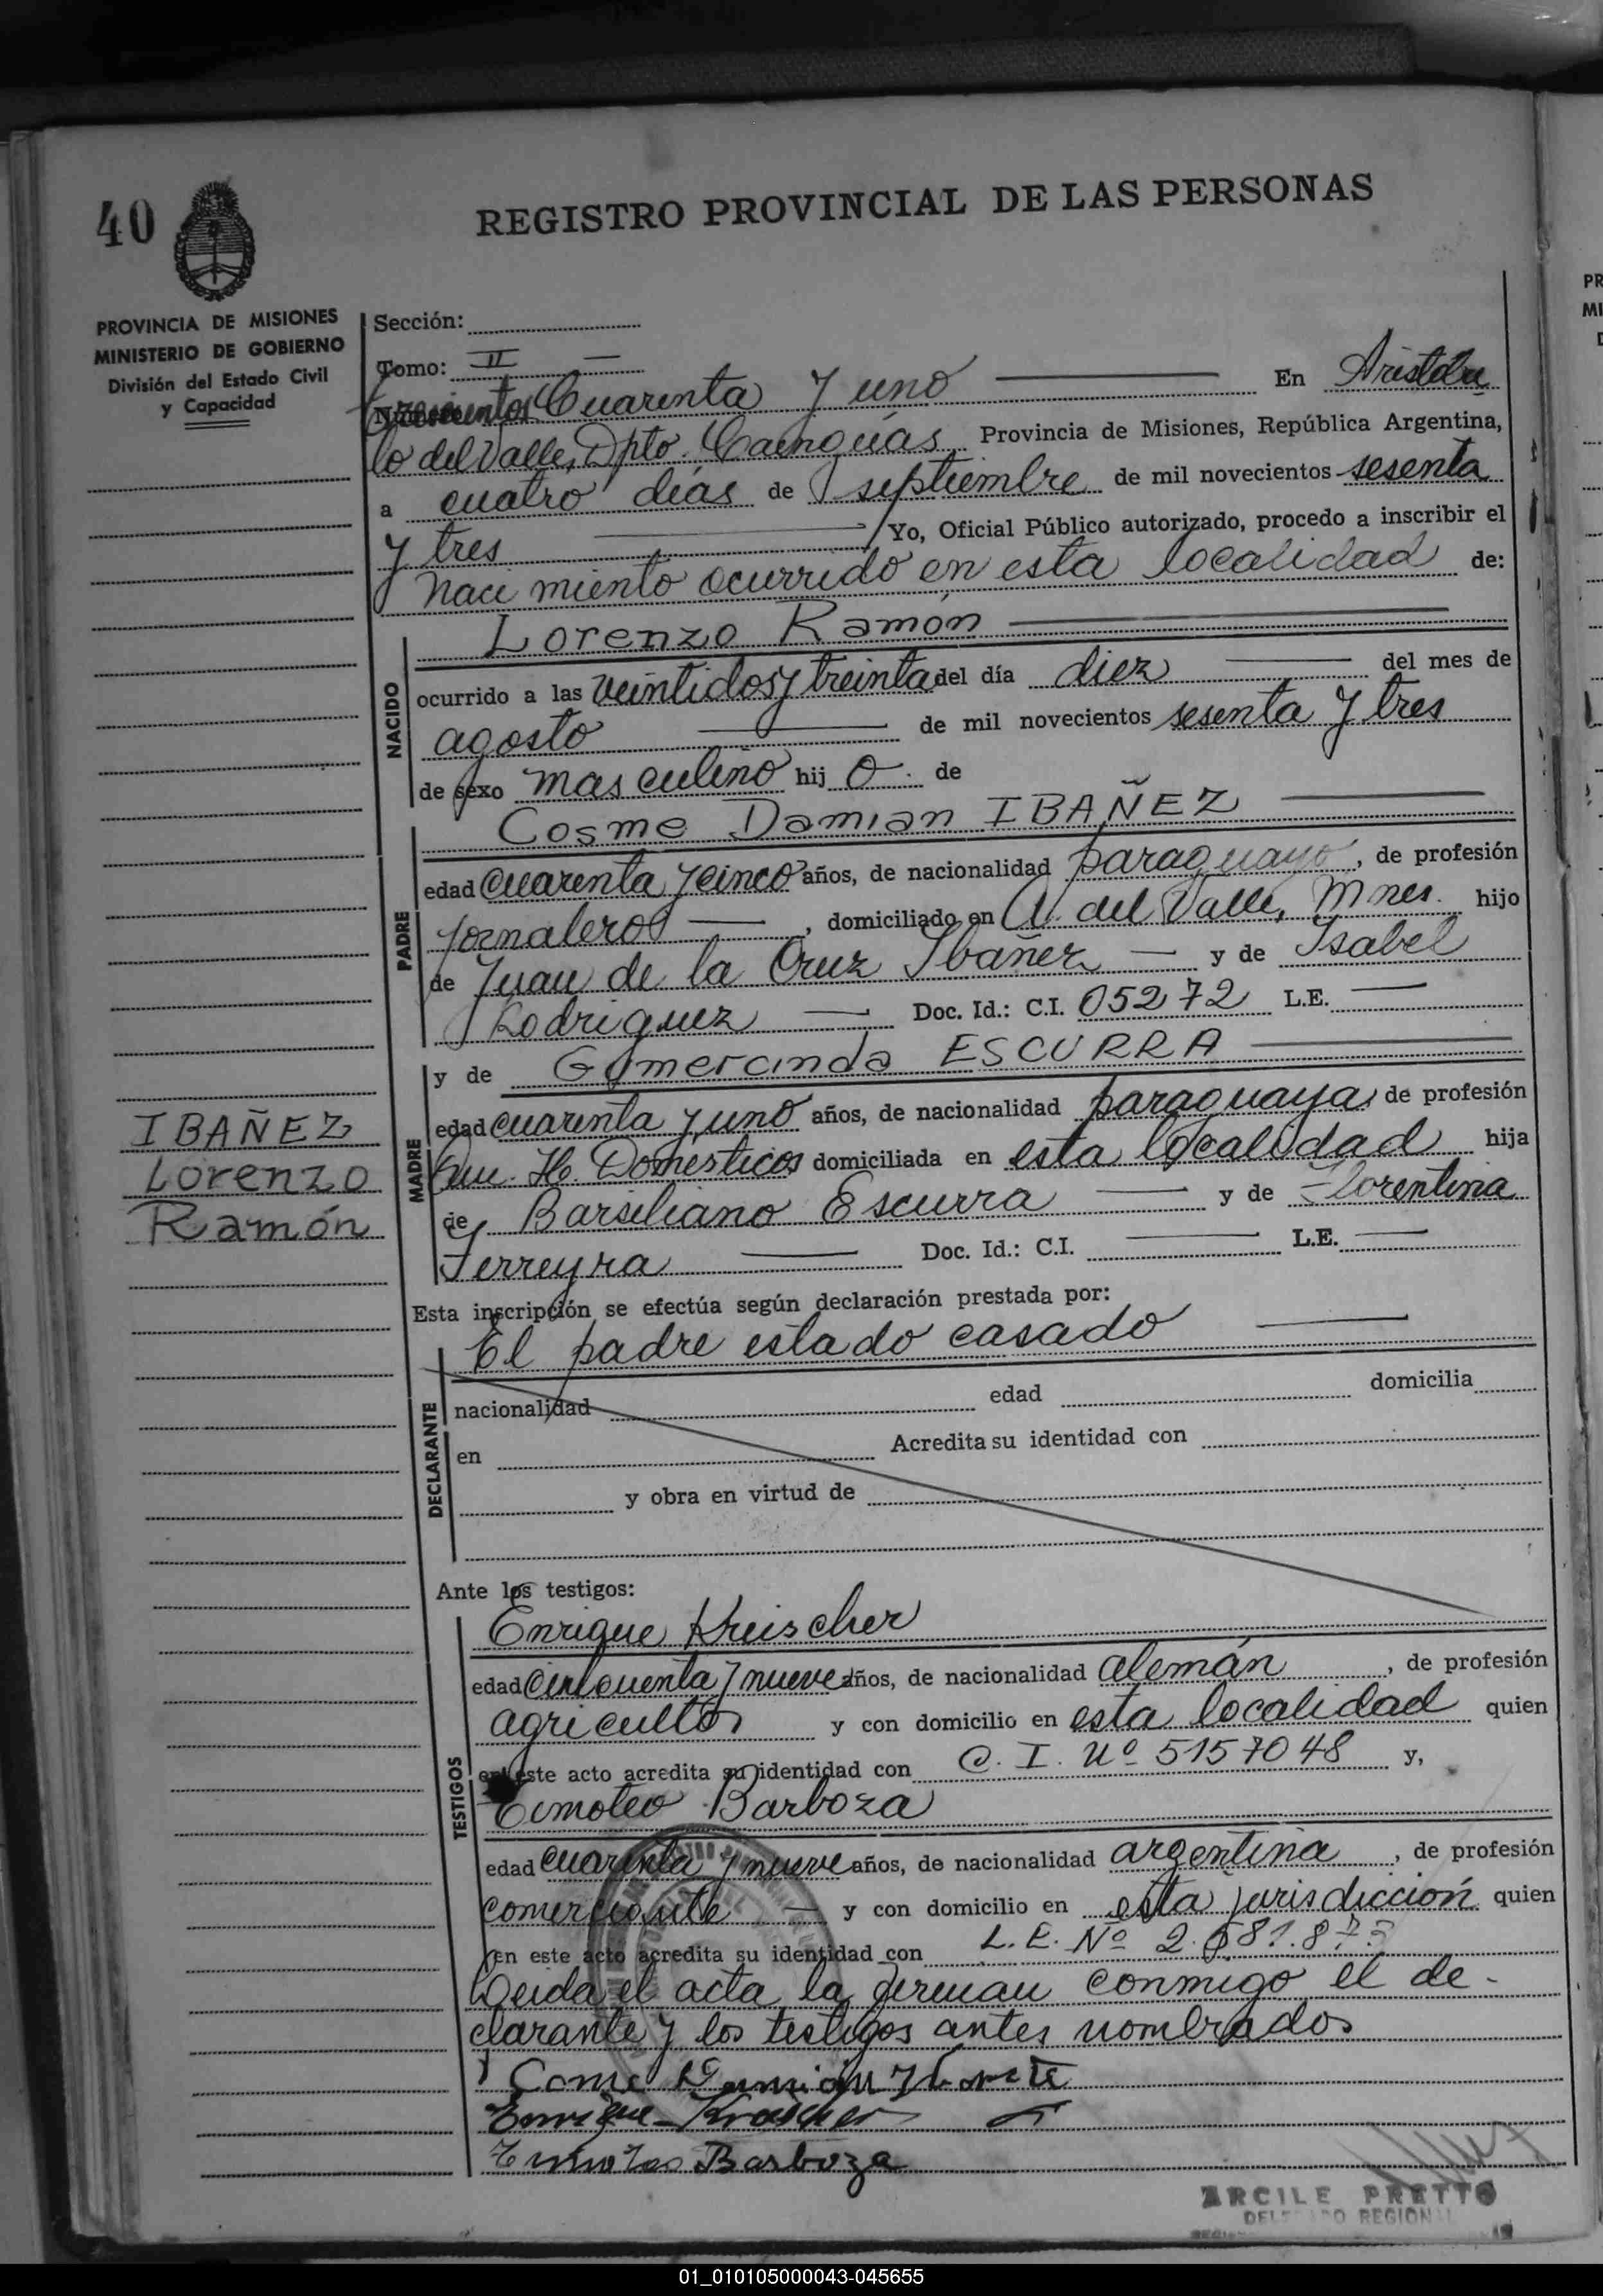 40
REGISTRO PROVINCIAL DE LAS PERSONAS
PROVINCIA DE MISIONES
MINISTERIO DE GOBIERNO
División del Estado Civil
y Capacidad
Sección:
Tomo: II —
Trescientos Cuarenta y uno — En Aristobu
lo del Valle, Dpto. Cainguás Provincia de Misiones, República Argentina,
a cuatro días de septiembre de mil novecientos sesenta
y tres — Yo, Oficial Público autorizado, procedo a inscribir el
Nacimiento ocurrido en esta localidad de:
Lorenzo Ramón —
NACIDO
ocurrido a las veintidos y treinta del día diez — del mes de
agosto — de mil novecientos sesenta y tres
de sexo masculino hij o. de
Cosme Damian IBAÑEZ —
PADRE
edad cuarenta y cinco años, de nacionalidad paraguayo, de profesión
jornalero —, domiciliado en A. del Valle, Mnes. hijo
de Juan de la Cruz Ibañez — y de Isabel
Rodriguez — Doc. Id.: C.I. 05272 L.E. —
y de Gumercinda ESCURRA —
MADRE
edad cuarenta y uno años, de nacionalidad paraguaya, de profesión
Qu. H. Domésticos domiciliada en esta localidad hija
de Barsiliano Escurra — y de Florentina
Ferreyra — Doc. Id.: C.I. — L.E. —
IBAÑEZ
Lorenzo
Ramón
Esta inscripción se efectúa según declaración prestada por:
El padre estado casado —
DECLARANTE
nacionalidad edad domicilia
en Acredita su identidad con
y obra en virtud de
Ante los testigos:
Enrique Kreischer
TESTIGOS
edad cincuenta y nueve años, de nacionalidad alemán, de profesión
agricultor y con domicilio en esta localidad quien
en este acto acredita su identidad con C. I. Nº 5157048 y,
Timoteo Barboza
edad cuarenta y nueve años, de nacionalidad argentina, de profesión
comerciante — y con domicilio en esta jurisdicción quien
en este acto acredita su identidad con L.E. Nº
Leida el acta la firman conmigo el de-
clarante y los testigos antes nombrados
Enrique
Barboza
ARCILE PRETTO
REGIONAL
PR
MI
01_010105000043-045655